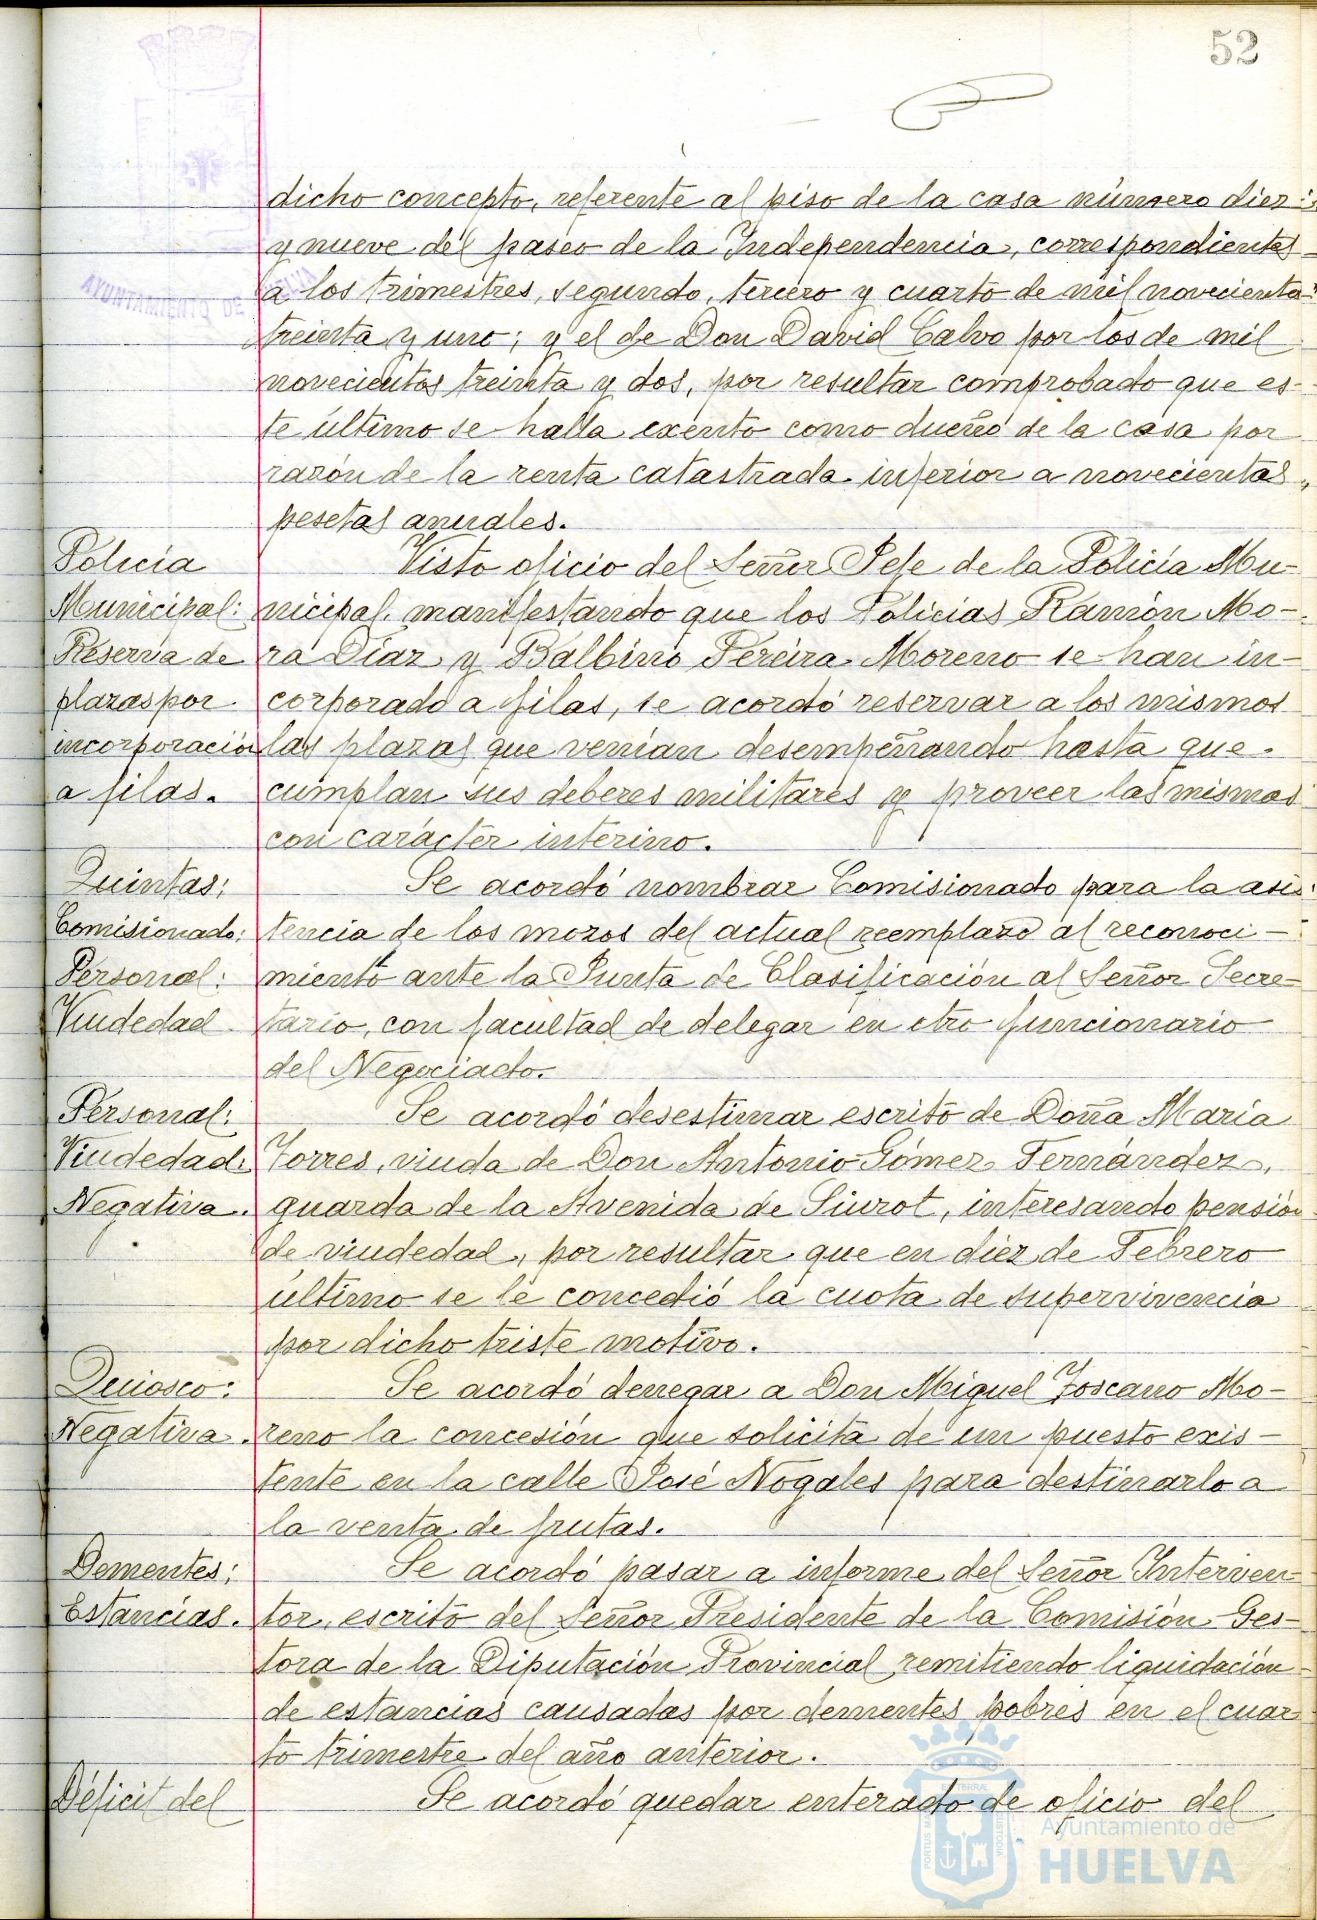 52
dicho concepto, referente al piso de la casa número diez
y nueve del paseo de la Independencia, correspondientes
a los trimestres, segundo, tercero y cuarto de mil novecientos
treinta y uno; y el de Don David Calvo por los de mil
novecientos treinta y dos, por resultar comprobado que es-
te último se halla exento como dueño de la casa por
razón de la renta catastrada inferior a novecientas
pesetas anuales.
Policía
Municipal:
Reserva de
plazas por
incorporación
a filas.
Visto oficio del Señor Jefe de la Policía Mu-
nicipal, manifestando que los Policías Ramón Mo-
ra Díaz y Balbino Pereira Moreno se han in-
corporado a filas, se acordó reservar a los mismos
las plazas que venían desempeñando hasta que
cumplan sus deberes militares y proveer las mismas
con carácter interino.
Quintas:
Comisionado:
Personal:
Viudedad
Se acordó nombrar Comisionado para la asis-
tencia de los mozos del actual reemplazo al reconoci-
miento ante la Junta de Clasificación al Señor Secre-
tario, con facultad de delegar en otro funcionario
del Negociado.
Personal:
Viudedad:
Negativa.
Se acordó desestimar escrito de Doña María
Torres, viuda de Don Antonio Gómez Fernández,
guarda de la Avenida de Siurot, interesando pensión
de viudedad, por resultar que en diez de Febrero
último se le concedió la cuota de supervivencia
por dicho triste motivo.
Quiosco:
Negativa.
Se acordó denegar a Don Miguel Toscano Mo-
reno la concesión que solicita de un puesto exis-
tente en la calle José Nogales para destinarlo a
la venta de frutas.
Dementes:
Estancias.
Se acordó pasar a informe del Señor Interven-
tor, escrito del Señor Presidente de la Comisión Ges-
tora de la Diputación Provincial remitiendo liquidación
de estancias causadas por dementes pobres en el cuar
to trimestre del año anterior.
Déficit del
Se acordó quedar enterado de oficio del
AYUNTAMIENTO DE HUELVA
Ayuntamiento de
HUELVA